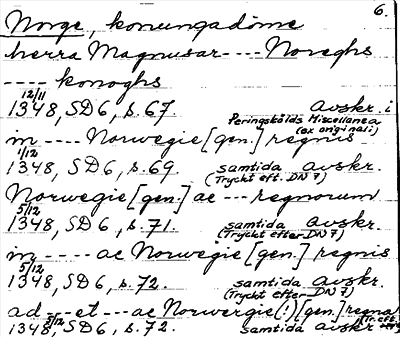 6.
Norge, konungadöme
herra Magnusar ---- Noreghs
---- konoghs
12/11
1348, SD6, s.67. Avskr. i
Peringskölds Miscellanea
(ex originali)
in ---- Norwegie [gen.] regnis
1/12
1348, SD6, s.69. samtida avskr.
(Tryckt eft. DN 7)
Norwegie [gen.] ac --- regnorum
5/12
1348, SD6, s.71. samtida avskr.
(Tryckt efter DN 7)
in --- ac Norwegie [gen.] regnis
5/12
1348, SD6, s.72. samtida avskr.
(Tryckt efter DN 7)
ad --- et --- ac Norwergie (!) [gen.] regna
5/12 (Tr. eft.
1348, SD6, s.72. samtida avskr.